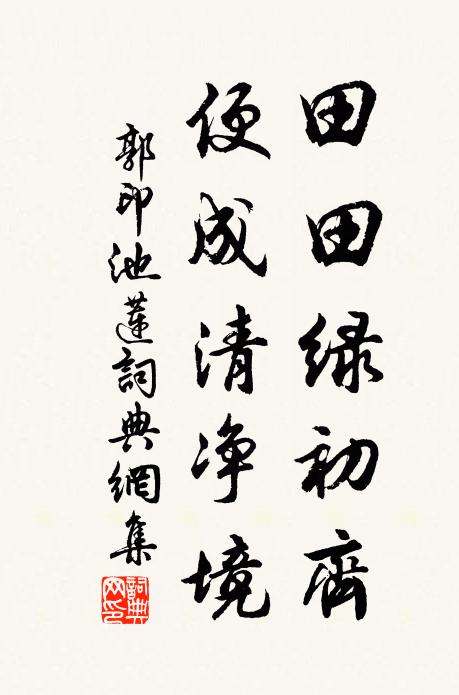 田田緑初齊
便成清净境
郭印池蓮詞典網集
詞典网印